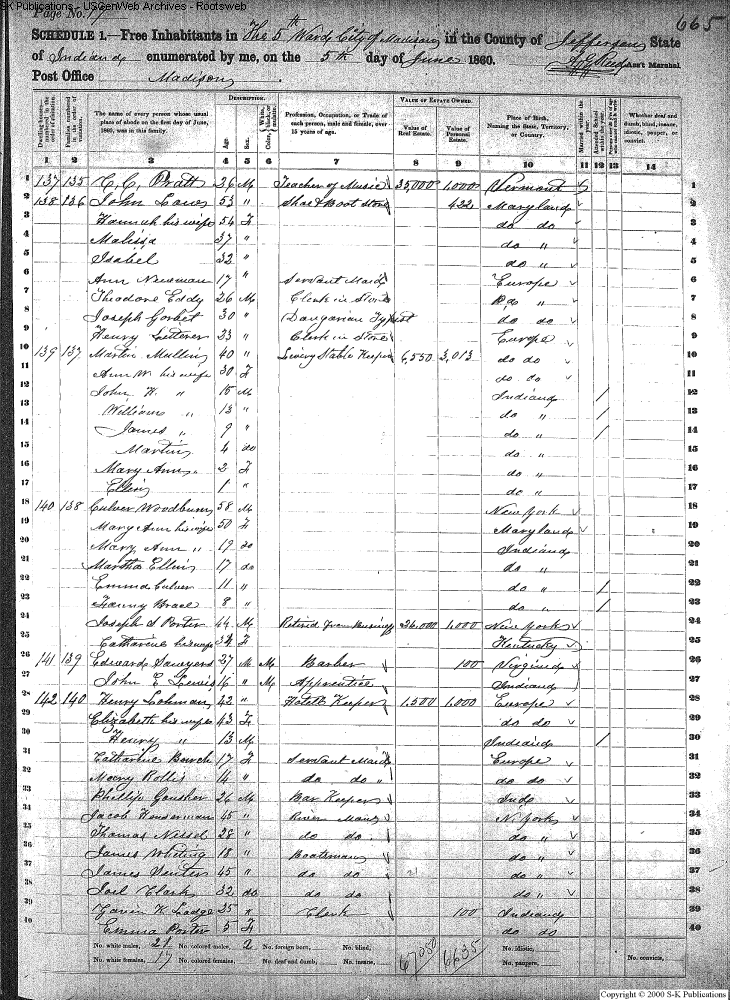 S-K Publications - USGenWeb Archives - Rootsweb
Page No. 17
665
SCHEDULE 1.—Free Inhabitants in The 5th Ward City of Madison in the County of Jefferson State
of Indiana enumerated by me, on the 5th day of June 1860. Ass't Marshal.
Post Office Madison
Dwelling-houses—numbered in the order of visitation.
Families numbered in the order of visitation.
The name of every person whose usual place of abode on the first day of June, 1860, was in this family.
DESCRIPTION.
Age.
Sex.
Color, White, black, or mulatto.
Profession, Occupation, or Trade of each person, male and female, over 15 years of age.
VALUE OF ESTATE OWNED.
Value of Real Estate.
Value of Personal Estate.
Place of Birth, Naming the State, Territory, or Country.
Married within the year.
Attended School within the year.
Whether deaf and dumb, blind, insane, idiotic, pauper, or convict.
1 2 3 4 5 6 7 8 9 10 11 12 13 14
1 137 135 C. C. Pratt 26 M Teacher of Music 35,000 1,000 Vermont 1
2 138 136 John 53 " Shoe & Boot Store 422 Maryland 2
3 Hannah his wife 54 F do do 3
4 Malissa 37 " do " 4
5 Isabel 32 " do " 5
6 Ann Newman 17 " Servant Maid Europe 6
7 Theodore Eddy 26 M Clerk in Store Do " 7
8 Joseph Gorbet 30 " do do 8
9 Henry 23 " Clerk in Store Europe 9
10 139 137 Martin Mullin 40 " Livery Stable Keeper 6,550 3,013 do do 10
11 Ann W. his wife 30 F do do 11
12 John H. " 15 M Indiana / 12
13 William " 13 " do " / 13
14 James " 9 " do " / 14
15 Martin 4 do do " 15
16 Mary Ann " 2 F do " 16
17 Ellen 1 " do " 17
18 140 138 Culver Woodburn 58 M New York 18
19 Mary Ann his wife 50 F Maryland 19
20 Mary Ann " 19 do Indiana 20
21 Martha Ellen 17 do do " 21
22 Emma Culver 11 " do " / 22
23 Fanny Brace 8 " do " / 23
24 Joseph S Porter 44 M Retired from Business 26,000 1,000 New York 24
25 Catharine his wife 34 F Kentucky 25
26 141 139 Edward Sawyers 27 M M Barber 100 Virginia 26
27 John E Lewis 16 " M Apprentice Indiana 27
28 142 140 Henry Lohman 42 " Hotell Keeper 1,500 1,000 Europe 28
29 Elizabeth his wife 43 F do do 29
30 Henry " 13 M Indiana / 30
31 Catharine Burch 17 F Servant Maid Europe 31
32 Mary Rollis 14 " do do " do do 32
33 Phillip Gousher 26 M Bar Keeper Inda 33
34 Jacob Henderman 45 " River Man N. York 34
35 Thomas Nessel 28 " do do do " 35
36 James Whiting 18 " Boatsman do " 36
37 James Venters 45 " do do do " 37
38 Joel Clark 32 do do do do " 38
39 Gavin H. Lodge 25 " Clerk 100 Indiana 39
40 Emma Porter 5 F do do 40
No. white males, 21 No. colored males, 2 No. foreign born, No. blind, 67050 6635 No. idiotic, No. convicts,
No. white females, 17 No. colored females, No. deaf and dumb, No. insane, No. paupers,
Copyright © 2000 S-K Publications